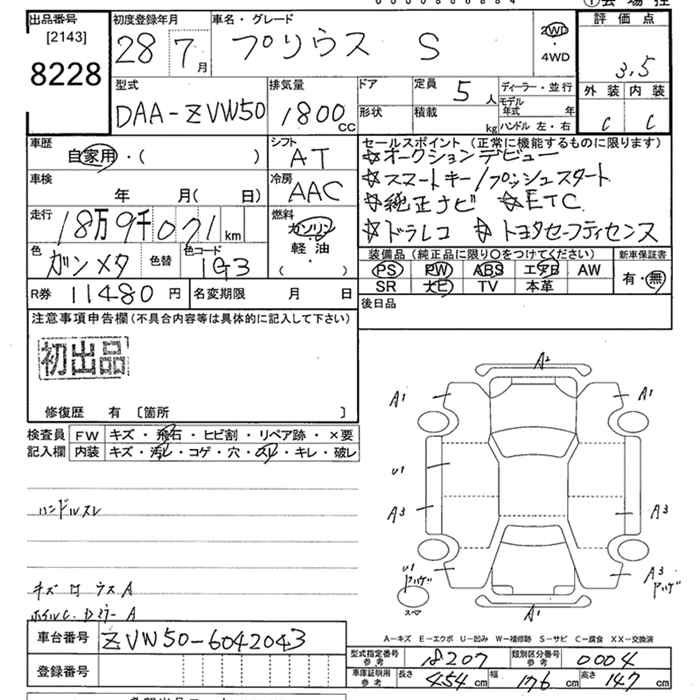 出品番号 [2143] 8228
初度登録年月 28年 7月
車名・グレード プリウス S
2WD・4WD
評価点 3.5
外装 C 内装 C
型式 DAA-ZVW50
排気量 1800 CC
ドア 定員 5人
形状 積載 kg
ディーラー・並行
モデル年式 年
ハンドル 左・右
車歴 自家用・( )
シフト AT
セールスポイント (正常に機能するものに限ります)
☆オークションデビュー
☆スマートキー/プッシュスタート
☆純正ナビ ☆ETC
☆ドラレコ ☆トヨタセーフティセンス
車検 年 月( 日)
冷房 AAC
走行 18万9千071 km
燃料 ガソリン 軽油 ( ・ )
色 ガンメタ 色替 色コード 1G3
装備品 (純正品に限り○をつけてください) 新車保証書
PS PW ABS エアB AW 有・無
SR ナビ TV 本革
R券 11480円 名変期限 月 日
後日品
注意事項申告欄 (不具合内容等は具体的に記入して下さい)
初出品
修復歴 有 〔箇所 〕
検査員 FW キズ・飛石・ヒビ割・リペア跡・×要
記入欄 内装 キズ・汚レ・コゲ・穴・スレ・キレ・破レ
ハンドルスレ
A2
A1 A1
U1
A3 A3
U1 A3
スペ A1
A-キズ E-エクボ U-凹み W-補修跡 S-サビ C-腐食 XX-交換済
車台番号 ZVW50-6042043
登録番号
型式指定番号 参考 18207 類別区分番号 参考 0004
車庫証明用 参考 長さ 454cm 幅 176cm 高さ 147cm